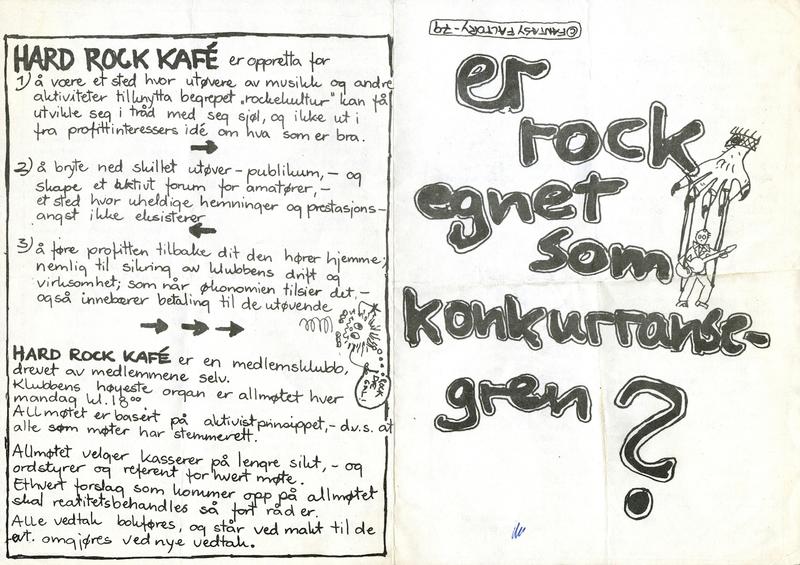 HARD ROCK KAFÉ er oppretta for
1) å være et sted hvor utøvere av musikk og andre
aktiviteter tilknytta begrepet "rockekultur" kan få
utvikle seg i tråd med seg sjøl, og ikke ut i
fra profittinteressers idé om hva som er bra.
2) å bryte ned skillet utøver-publikum,- og
skape et aktivt forum for amatører,-
et sted hvor uheldige hemninger og prestasjons-
angst ikke eksisterer
3) å føre profitten tilbake dit den hører hjemme;
nemlig til sikring av klubbens drift og
virksomhet; som når økonomien tilsier det,-
også innebærer betaling til de utøvende
HARD ROCK KAFÉ er en medlemsklubb,
drevet av medlemmene selv.
Klubbens høyeste organ er allmøtet hver
mandag kl. 18⁰⁰
Allmøtet er basert på aktivistprinsippet,- d.v.s. at
alle som møter har stemmerett.
Allmøtet velger kasserer på lengre sikt,- og
ordstyrer og referent for hvert møte.
Ethvert forslag som kommer opp på allmøtet
skal realitetsbehandles så fort råd er.
Alle vedtak bokføres, og står ved makt til de
evt. omgjøres ved nye vedtak.
© FANTASY FACTORY-79
er
rock
egnet
som
konkurranse-
gren
?